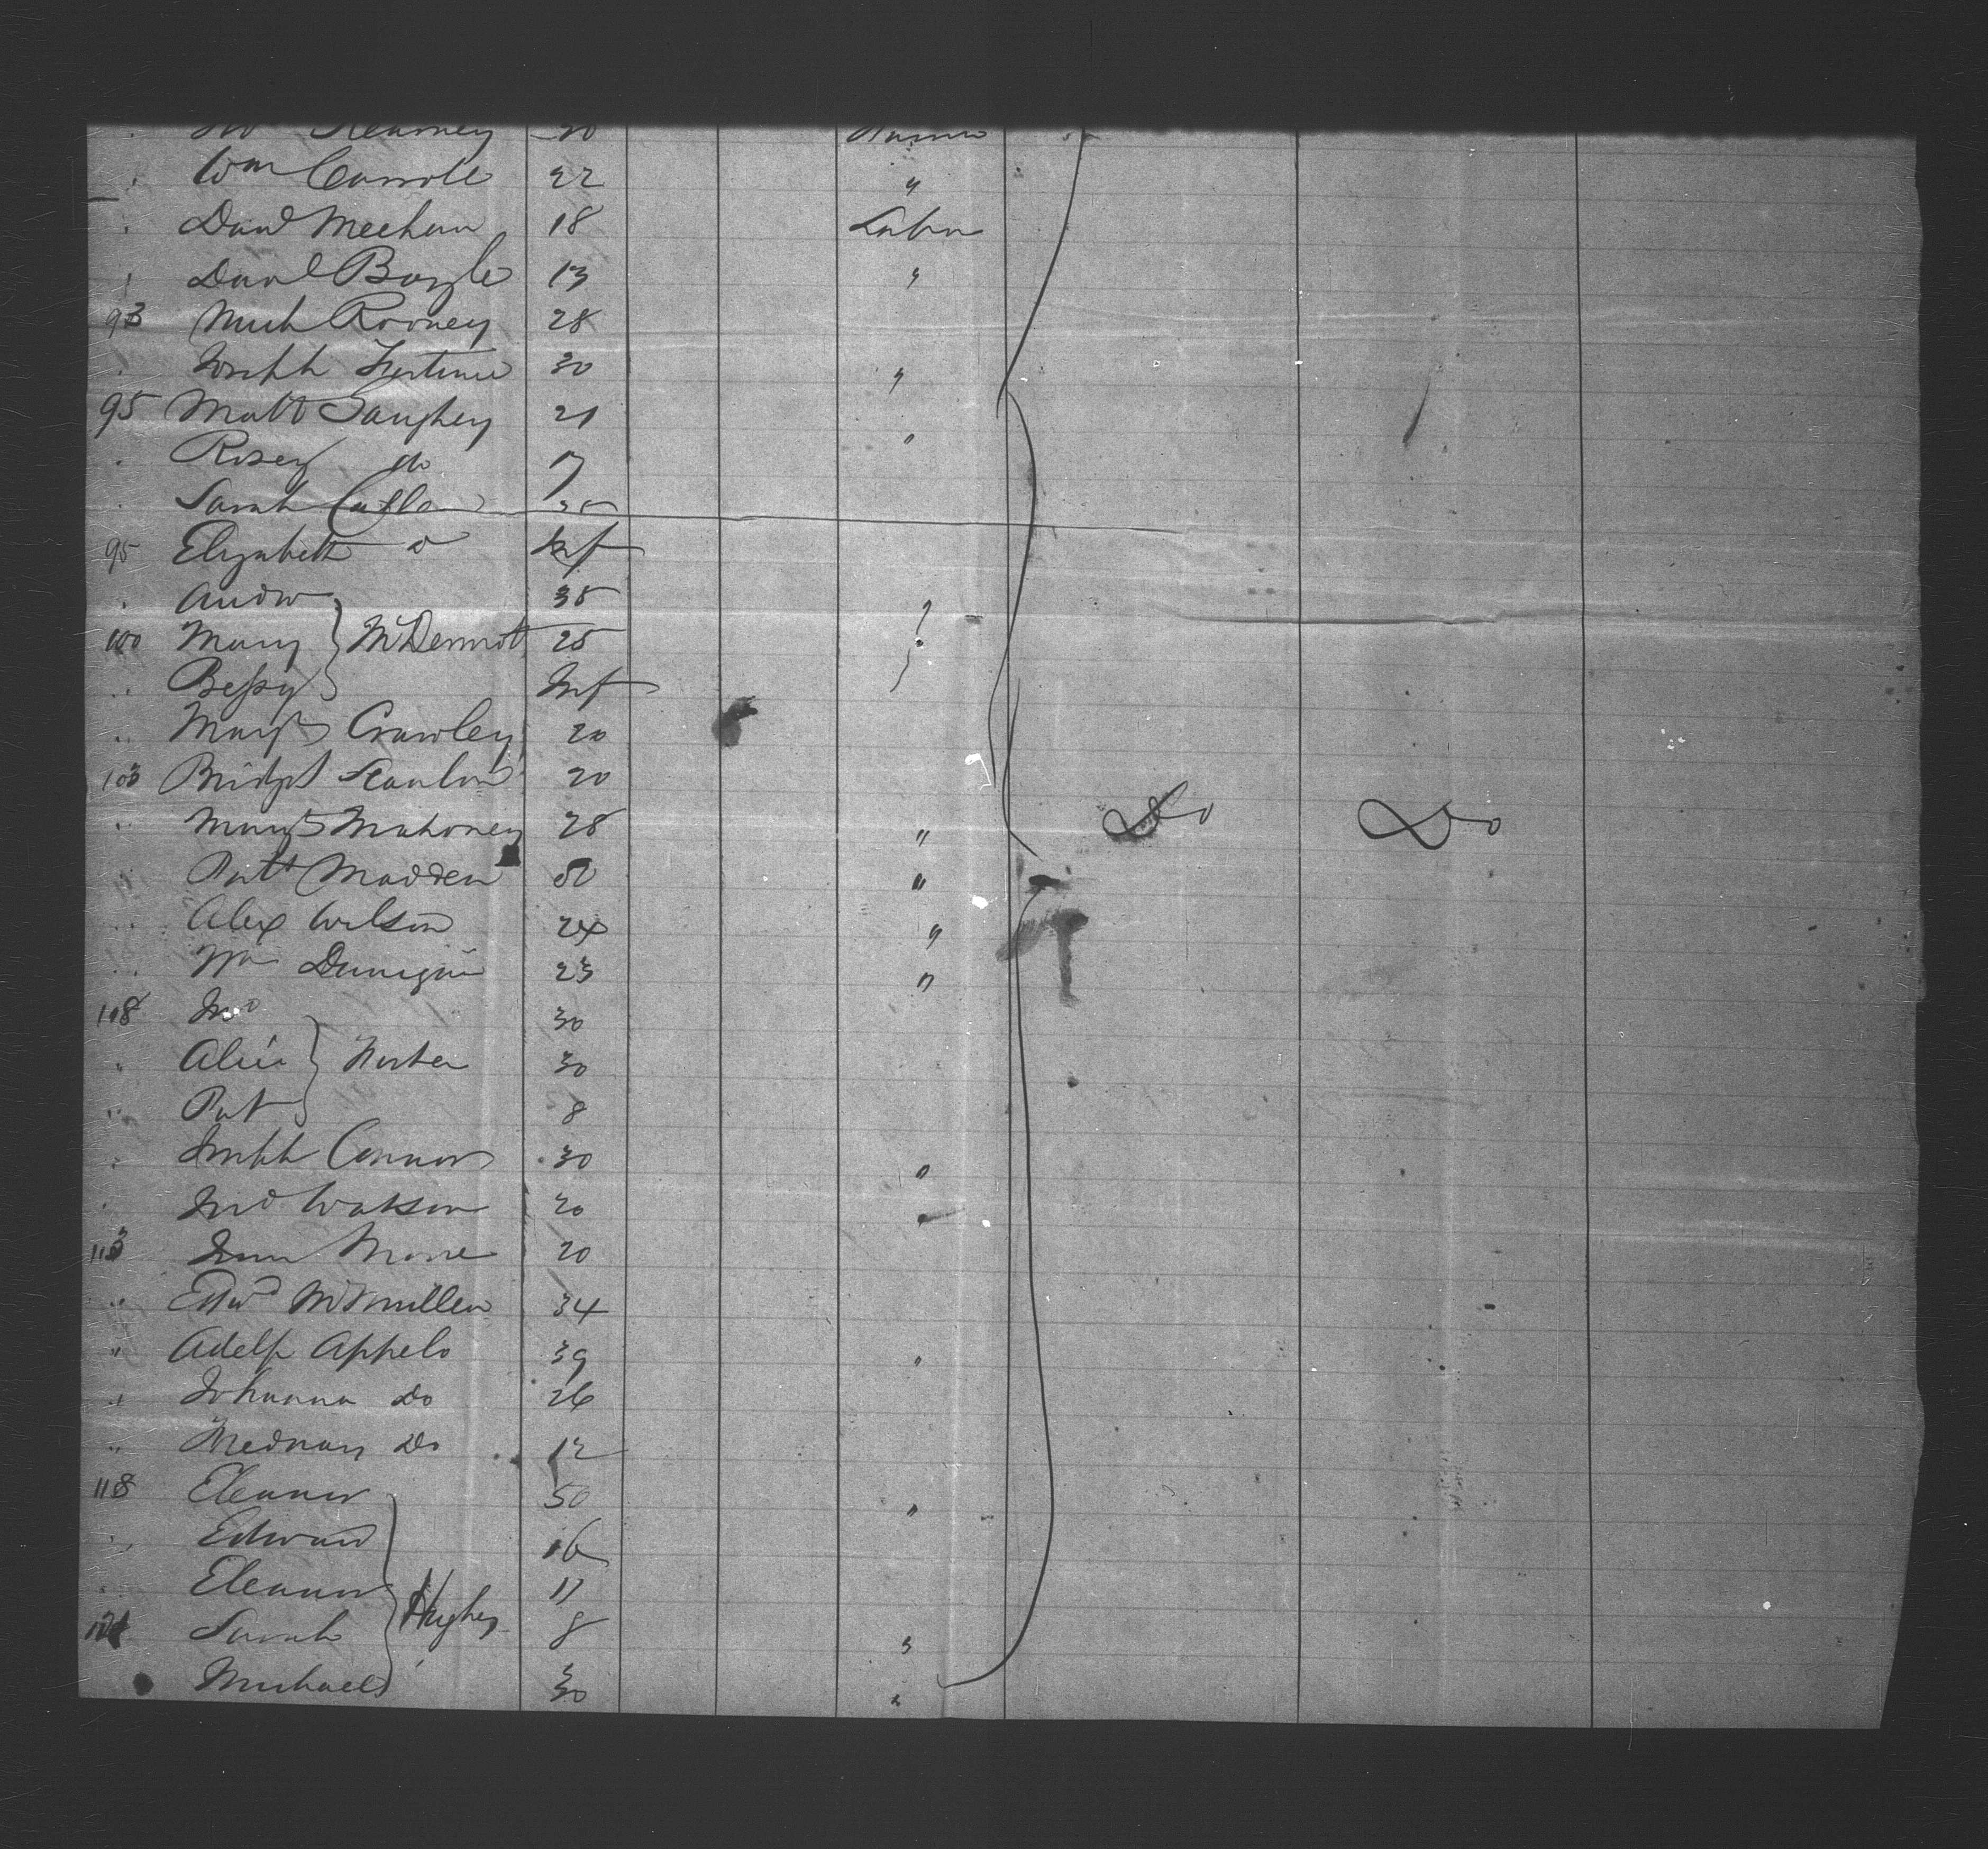 Kearney 30
Wm Carrole 22 "
Danl Meehan 18 Labor
Danl Boyle 13 "
93 Mich Rooney 28
Joseph 30 "
95 Matt Saughey 21 "
Rosey do 17
Sarah
95 Elizabeth Do Inf
Andw 35 "
100 Mary } McDermot 25 "
Bessy Inf
Margt Crawley 20
103 Bridgt Scanlon 20
Margt Mahoney 28 " Do Do
Patk Madden 50 "
Alex Wilson 24 "
Wm Dunigan 23 "
108 Jno 30
Alice } 30
Pat 8
Joseph Connor 30 "
Jno Watson 20 "
113 20
Edwd McMullen 34
Adolf Appelo 39 "
Johanna Do 26
Do 12
118 Eleanor 50 "
Edward 16
Eleanor 11
121 Sarah } Hughes 8 "
Michael 30 "